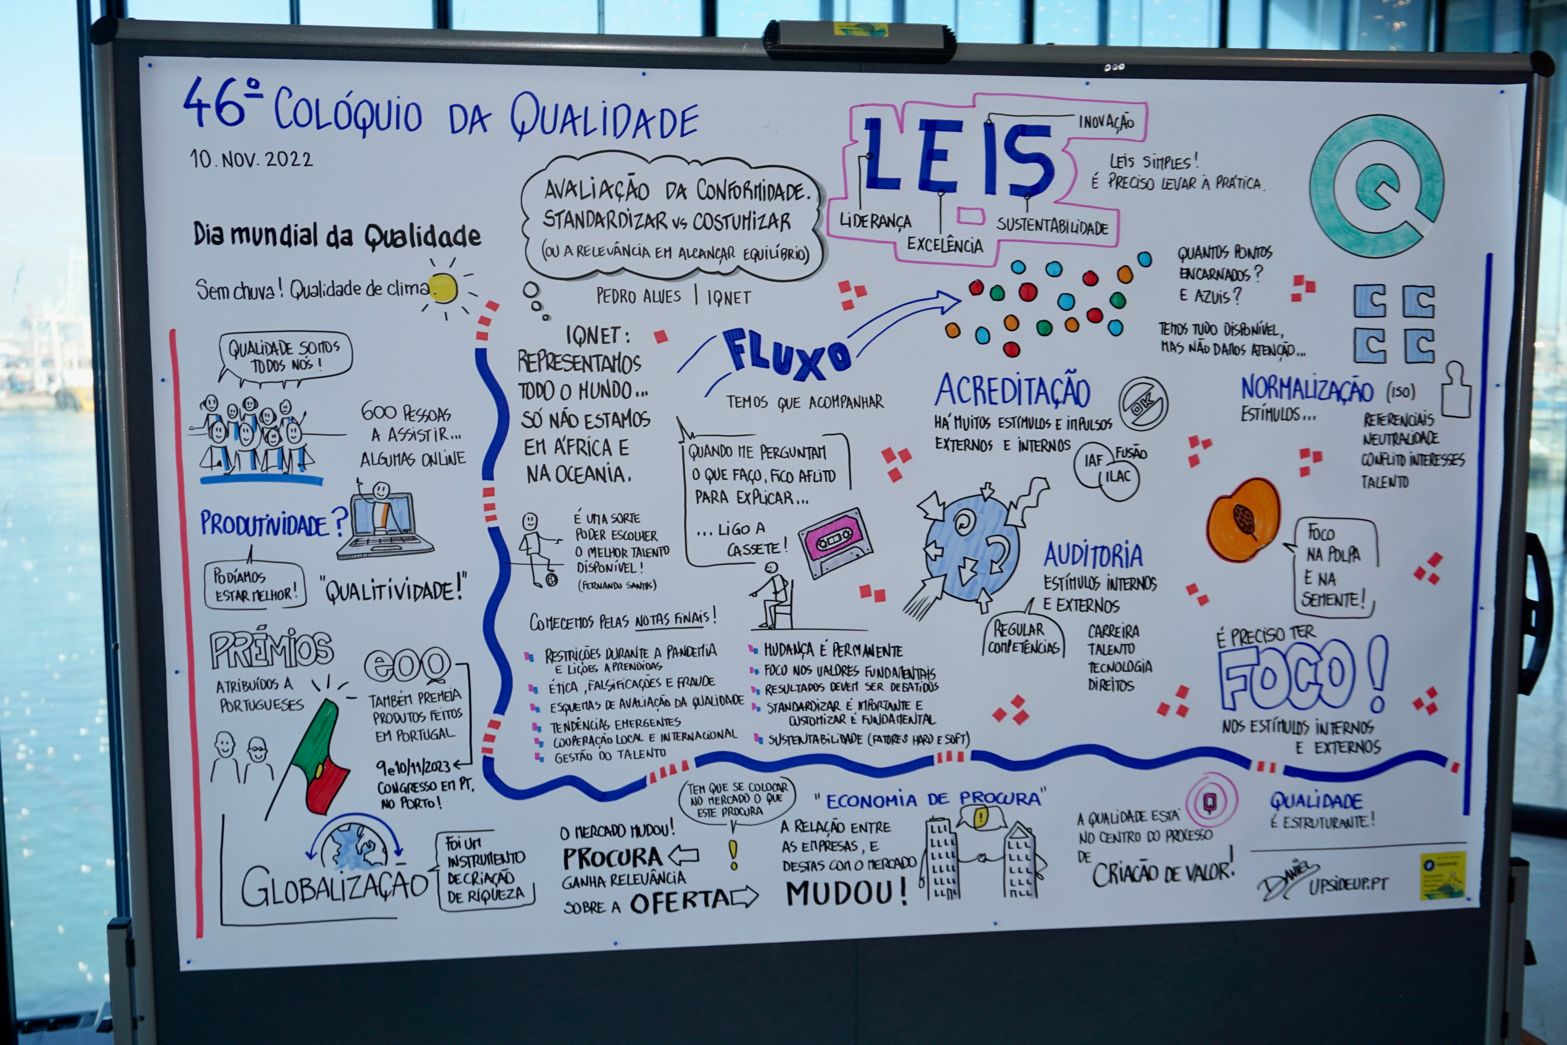 46º COLÓQUIO DA QUALIDADE
10. NOV. 2022
Dia mundial da Qualidade
Sem chuva! Qualidade de clima.
QUALIDADE SOMOS
TODOS NÓS!
600 PESSOAS
A ASSISTIR...
ALGUMAS ONLINE
PRODUTIVIDADE?
PODÍAMOS
ESTAR MELHOR!
"QUALITIVIDADE!"
PRÉMIOS
ATRIBUÍDOS A
PORTUGUESES
EOQ
TAMBÉM PREMEIA
PRODUTOS FEITOS
EM PORTUGAL
9 e 10/11/2023
CONGRESSO EM PT,
NO PORTO!
GLOBALIZAÇÃO
FOI UM
INSTRUMENTO
DE CRIAÇÃO
DE RIQUEZA
AVALIAÇÃO DA CONFORMIDADE.
STANDARDIZAR vs COSTUMIZAR
(OU A RELEVÂNCIA EM ALCANÇAR EQUILÍBRIO)
PEDRO ALVES | IQNET
IQNET:
REPRESENTAMOS
TODO O MUNDO...
SÓ NÃO ESTAMOS
EM ÁFRICA E
NA OCEANIA.
É UMA SORTE
PODER ESCOLHER
O MELHOR TALENTO
DISPONÍVEL!
(FERNANDO SANTOS)
LEIS
INOVAÇÃO
LIDERANÇA
EXCELÊNCIA
SUSTENTABILIDADE
LEIS SIMPLES!
É PRECISO LEVAR À PRÁTICA.
Q
QUANTOS PONTOS
ENCARNADOS?
E AZUIS?
TEMOS TUDO DISPONÍVEL,
MAS NÃO DAMOS ATENÇÃO...
C C
C C
FLUXO
TEMOS QUE ACOMPANHAR
QUANDO ME PERGUNTAM
O QUE FAÇO, FICO AFLITO
PARA EXPLICAR...
...LIGO A
CASSETE!
ACREDITAÇÃO
HÁ MUITOS ESTÍMULOS E IMPULSOS
EXTERNOS E INTERNOS
OK
IAF FUSÃO
ILAC
NORMALIZAÇÃO (ISO)
ESTÍMULOS...
REFERENCIAIS
NEUTRALIDADE
CONFLITO INTERESSES
TALENTO
FOCO
NA POLPA
E NA
SEMENTE!
AUDITORIA
ESTÍMULOS INTERNOS
E EXTERNOS
REGULAR
COMPETÊNCIAS
CARREIRA
TALENTO
TECNOLOGIA
DIREITOS
É PRECISO TER
FOCO!
NOS ESTÍMULOS INTERNOS
E EXTERNOS
COMECEMOS PELAS NOTAS FINAIS!
RESTRIÇÕES DURANTE A PANDEMIA
E LIÇÕES APRENDIDAS
ÉTICA, FALSIFICAÇÕES E FRAUDE
ESQUEMAS DE AVALIAÇÃO DA QUALIDADE
TENDÊNCIAS EMERGENTES
COOPERAÇÃO LOCAL E INTERNACIONAL
GESTÃO DO TALENTO
MUDANÇA É PERMANENTE
FOCO NOS VALORES FUNDAMENTAIS
RESULTADOS DEVEM SER DEBATIDOS
STANDARDIZAR É IMPORTANTE E
CUSTOMIZAR É FUNDAMENTAL
SUSTENTABILIDADE (FATORES HARD E SOFT)
O MERCADO MUDOU!
PROCURA
GANHA RELEVÂNCIA
SOBRE A OFERTA
TEM QUE SE COLOCAR
NO MERCADO O QUE
ESTE PROCURA
!
"ECONOMIA DE PROCURA"
A RELAÇÃO ENTRE
AS EMPRESAS, E
DESTAS COM O MERCADO
MUDOU!
!
A QUALIDADE ESTÁ
NO CENTRO DO PROCESSO
DE
CRIAÇÃO DE VALOR!
Q
QUALIDADE
É ESTRUTURANTE!
UPSIDEUP.PT